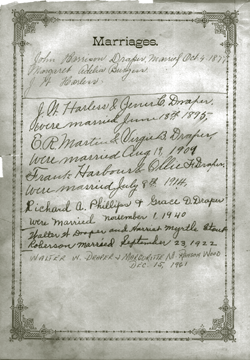 Marriages.
John Harrison Draper, Married Oct 9 1877
Margaret
J. H. Harlen
J. H. Harlen & Jennie C. Draper.
were married June 13th 1895.
E. R. Martin & Virgie B. Draper
were married Aug 19, 1909
Frank Harbour & Ollie F. Draper,
were married July 8th 1914,
Richard A. Phillips & Grace D. Draper
were married november 1, 1940
Walter H. Draper and Harriet Myrtle Stout
Roberson married September 23, 1922
WALTER H. DRAPER & MARGUERITE N. WOOD
DEC. 15, 1961